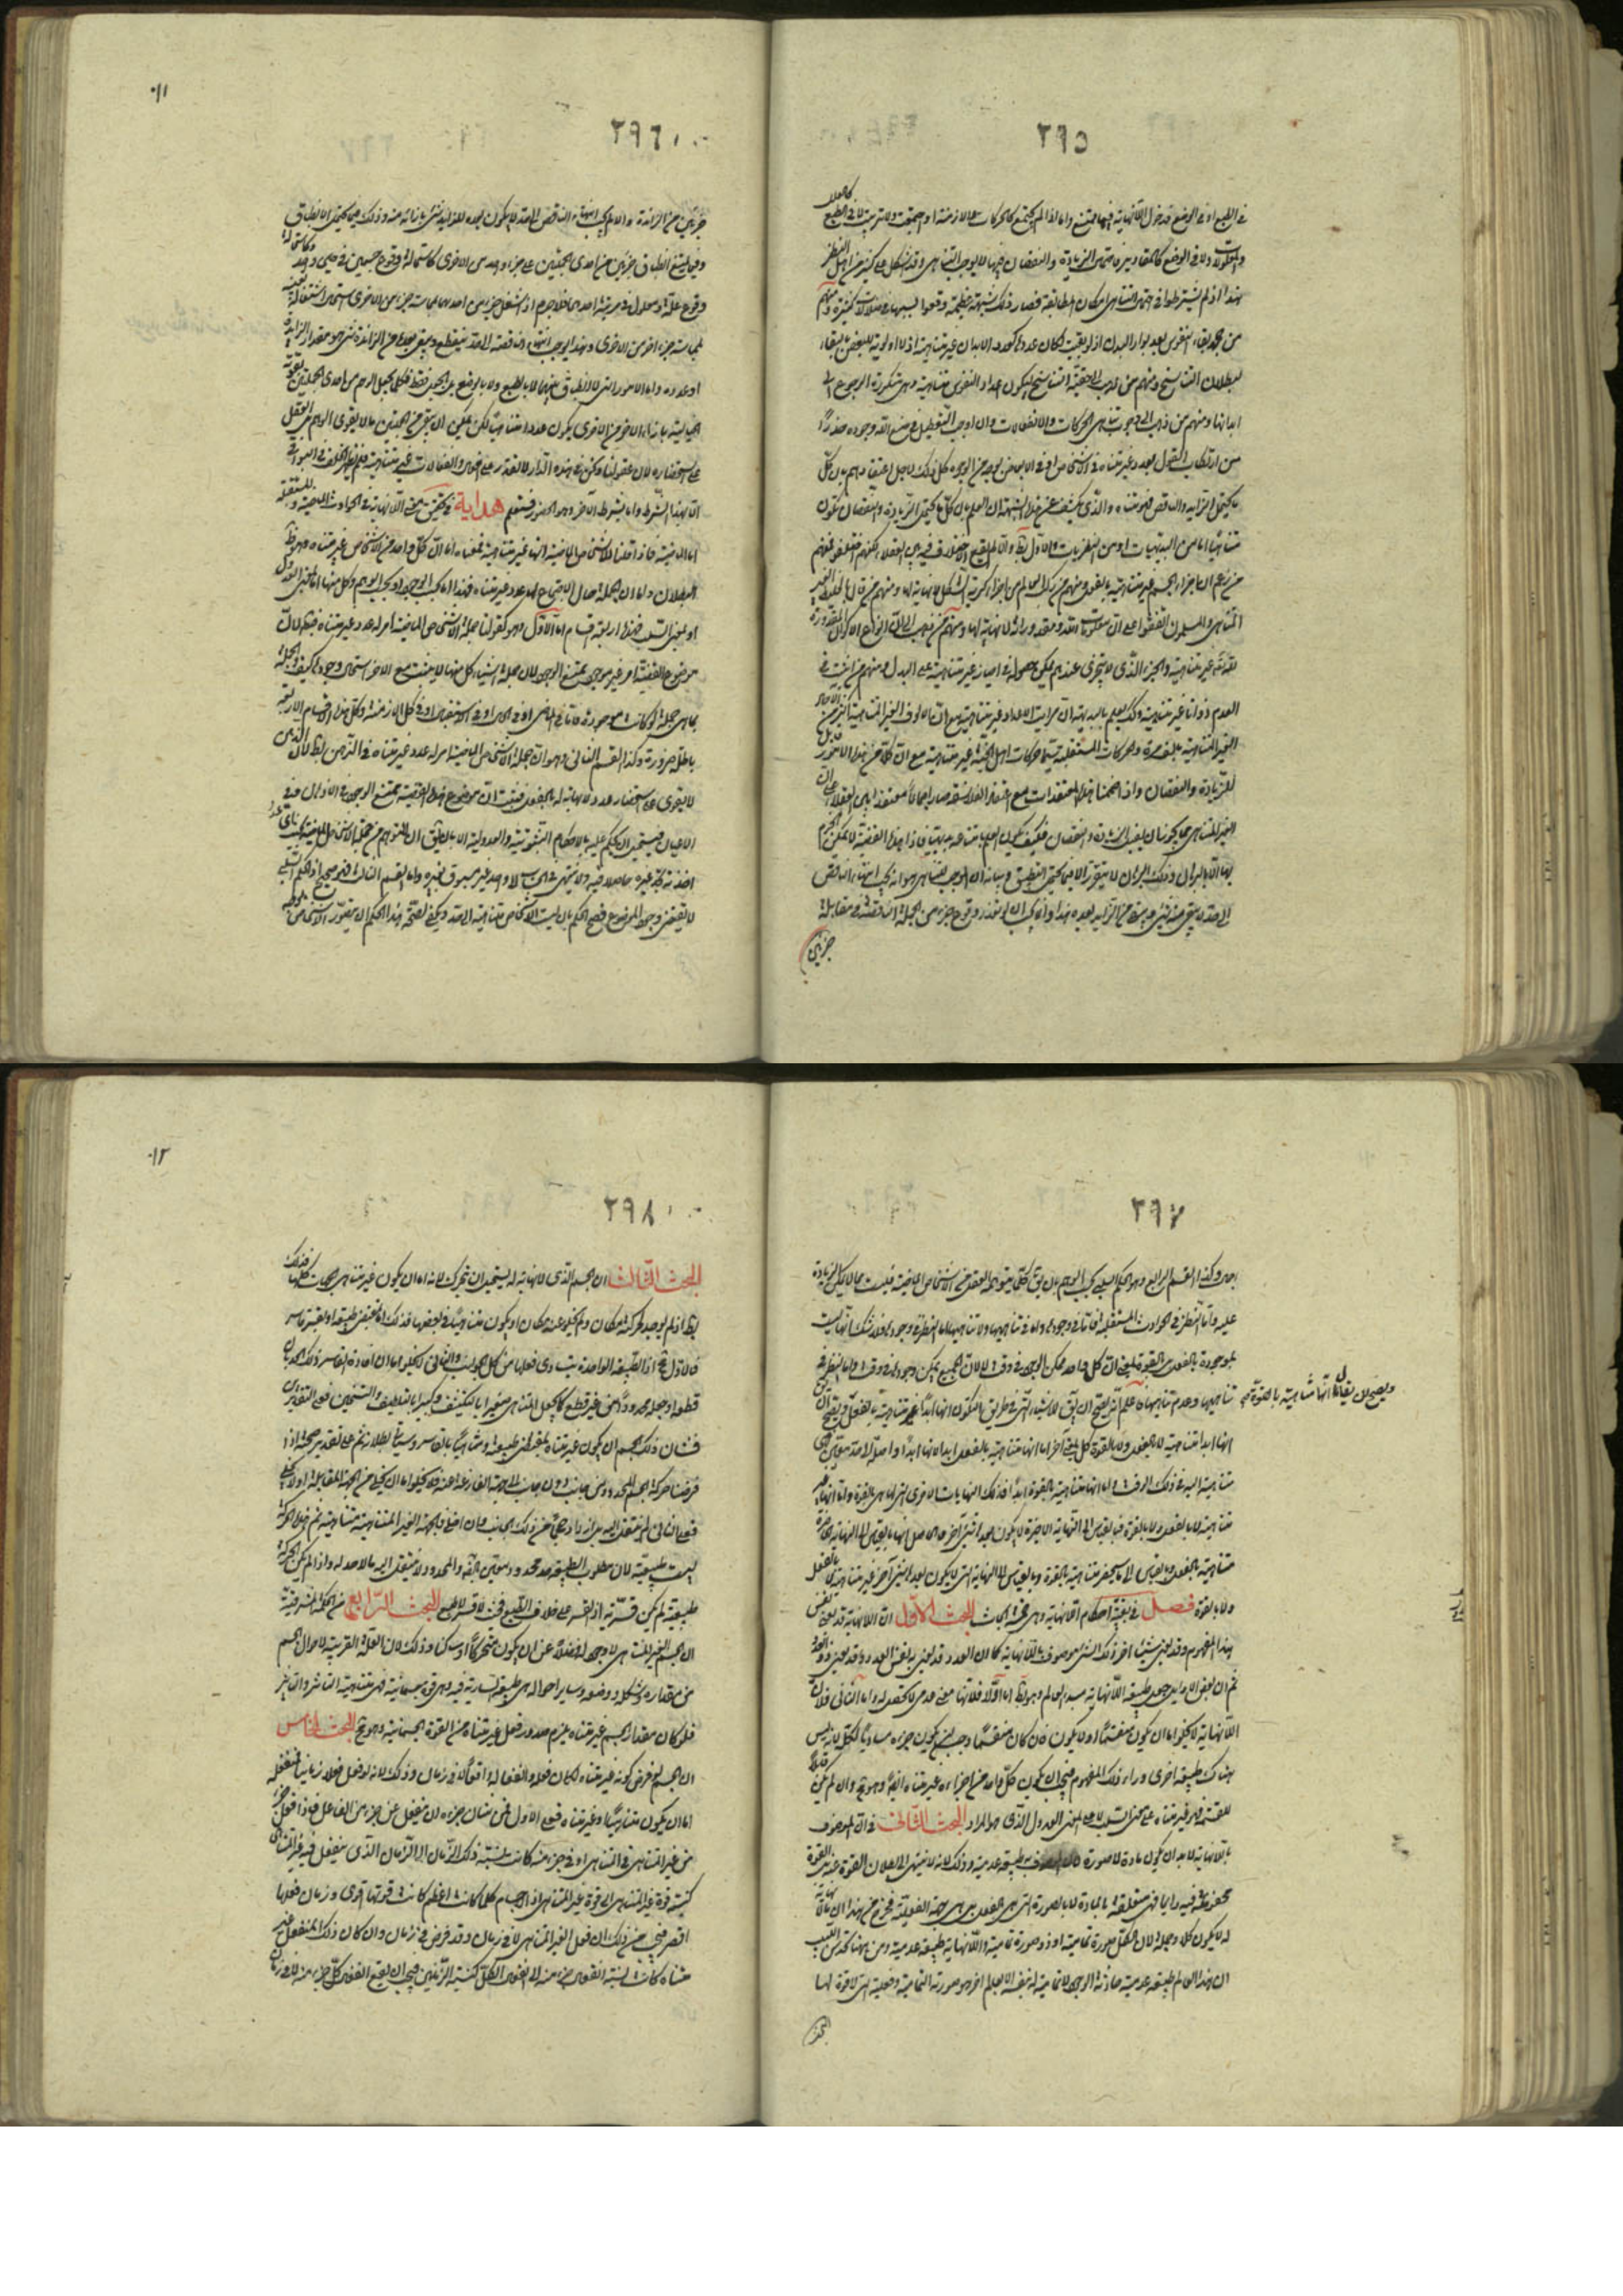 ٢٩٥
في الطبع او في الوضع فدخول اللانهاية فيها ممتنع واما اذا لم يجتمع كالحركات والازمنة او اجتمعت ولا ترتيب لا في الطبع كالعلل
والمعلولات ولا في الوضع كالمقادير فاحتمال الزيادة والنقصان فيها لا يوجب التناهي وقد اشكل على كثير من اهل النظر
هذا اذ لم يشترطوا في حقهم التناهي امكان المطابقة فصار ذلك شبهة عظيمة وقعوا بسببها في ضلالات كثيرة ومنهم
من جحد بقاء النفوس بعد بوار البدن اذ لو بقيت لكان عددها كعدد الابدان غير متناهية اذ لا اولوية للبعض بالبقاء
لبطلان التناسخ ومنهم من ذهب الى حقية التناسخ ليكون اعداد النفوس متناهية وهي متكررة الرجوع الى
ابدانها ومنهم من ذهب الى وجوب تناهي الحركات والانفعالات وان اوجب التعطيل في صنع الله وجوده حذرا
من ارتكاب القول بعدد غير متناه في الاشخاص او في الابعاض بوجه من الوجوه كل ذلك لاجل اعتقادهم بان كل
ما يحتمل الزايد والناقص فهو متناه والذي يكشف عن هذا الشبهة ان العلم بان كل ما يحتمل الزيادة والنقصان يكون
متناهيا اما من البديهيات او من النظريات والاول بط والا لم يقع الاختلاف فيه بين العقلاء لكنهم اختلفوا فمنهم
من زعم ان اجزاء الجسم غير متناهية بالفعل ومنهم من
المتناهي والمسلمون اتفقوا على ان معلومات الله ومقدوراته لا نهاية لها
لله تعالى غير متناهية والجزء الذي لا يتجزى عندهم يمكن حصوله في احياز غير متناهية على البدل ومنهم من اثبت في
العدم ذواتا غير متناهية وكل يعلم بالبديهة ان مراتب الاعداد غير متناهية مع ان الالوف الغير المتناهية اكثر من
الغير المتناهية بالضرورة والحركات المستقبلة سيما حركات اهل الجنة غير متناهية مع ان كلا من هذه الامور قابل
للزيادة والنقصان واذا ضممنا هذه المعتقدات مع اعتقاد الفلاسفة صار اجماعا
الغير المتناهي مما يجوز ان يقبل الزيادة والنقصان فكيف يكون العلم بامتناعه بديهيا فاذا هذه القضية لا يمكن الجزم
بها الا بالبرهان وذلك البرهان لا يتقرر الا فيما يحتمل التطبيق وبيانه ان الموجب للتناهي هو انه يجب انتهاء الناقص
الى حد لا يبقى منه شيء ويبقى من الزايد بعده هذا وانما يجب ان لو تعذر وقوع جزء من الجملة الناقصة في مقابلة
جزئين
٢٩٦
٠١١
جزئين من الزائدة والا لم يجب انتهاء الناقص الى حد لا يكون بعده للزايد شيء بازائه منه وذلك فيما يحتمل الانطباق
وفيما يمتنع انطباق جزئين من احدى الجملتين على جزء واحد من الاخرى كاستحالة وقوع جسمين في حيز واحد وكاستحالة
وقوع علة ومعلول في مرتبة احدهما فلا جرم اذا اشتغل جزء من احدهما بمماسة جزء من الاخرى استحال اشتغاله بعينه
بمماسة جزء اخر من الاخرى وهذا يوجب انتهاء الناقصة الى حد ينقطع ويبقى بعدها من الزائدة شيء هو مقدار الزايدة
او عدده واما الامور التي لا انطباق بينها لا بالطبع ولا بالوضع بل بالجعل فقط فكلما يجعل الوهم من احدى الجملتين بقوته
الخيالية بازاء الاخر من الاخرى يكون عددا متناهيا لكن يمكن ان يبقى من الجملتين ما لا يقوى الوهم بل العقل
على استحضاره لان عقولنا ونحن في هذه الدار لا تقدر على افعال وانفعالات غير متناهية
الا بهذا الشرط واما بشرط آخر وهو الحضور فستعلم هداية في تحقيق معنى اللانهاية في الحوادث الماضية والمستقبلة
اما الماضية فاذا قلنا للاشخاص الماضية انها غير متناهية فمعناه اما ان كل واحد من الاشخاص غير متناه وهو ظ
البطلان واما ان الجملة حال الاجتماع لها عدد غير متناه فهذا اما بحسب الوجود او بحسب الوهم وكل منهما اما بمعنى العدول
او بمعنى السلب فهذه اربعة اقسام اما الاول وهو كقولنا جملة الاشخاص الماضية امر له عدد غير متناه فبطلانه لان
موضوع القضية امر غير موجود بل ممتنع الوجود لان جملة اشياء كل منها لا يثبت مع الاخر استحال وجودها فكيف الجملة
بما هي جملة لو كانت موجودة فاما في الماضي او في الحال او في الاستقبال او في كل الازمنة وكل هذه الاقسام الاربعة
باطلة ضرورة وكذا القسم الثاني وهو ان جملة الاشخاص الماضية امر له عدد غير متناه في الذهن بط لان الذهن
لا يقوى على استحضار عدد لا نهاية له بالفعل فثبت ان موضوع هذه القضية ممتنع الوجود في الاذهان وفي
الاعيان فيستحيل ان يحكم عليه بالاحكام الثبوتية والعدولية الا بان يقال ان المتوهم من جملة الاشخاص الماضية
اخذته تجد غيره حاصلا قبله ولا ينتهي في الحساب الى واحد غير مسبوق بغيره واما القسم الثالث فهو صحيح اذ الحكم السلبي
لا يقتضي وجود الموضوع فصح الحكم بان ليست الاشخاص متناهية الى حد ويكفي لصحة هذا الحكم ان يتصور الاشخاص
٢٩٧
وكذا القسم الرابع وهو الحكم السلبي بحسب الوهم بان يقال كلما يتوهمه العقل من الاشخاص الماضية فليست مما لا يمكن الزيادة
عليه واما النظر في الحوادث المستقبلة فاما في وجودها واما في تناهيها ولا تناهيها اما النظر في وجودها فلا شك انها ليست
بموجودة بالفعل بل بالقوة بمعنى ان كل واحد ممكن الوجود في وقت لا ان الجميع يمكن وجودها في وقت واما النظر في
تناهيها وعدم تناهيها فاعلم انه يصح ان يقال للاشياء التي في طريق التكون انها ابدا غير متناهية بالفعل ويصح ان
ويصح ان يقال انها متناهية بالقوة
انها ابدا متناهية لا بالفعل ولا بالقوة كل بمعنى آخر اما انها متناهية بالفعل ابدا لانها ابدا واصلة الى حد معين هي
متناهية اليه في ذلك الوقت واما انها متناهية بالقوة ابدا فذلك النهايات الاخرى التي لها هي بالقوة واما انها غير
متناهية لا بالفعل ولا بالقوة فبالقياس الى النهاية الاخيرة لا يكون بعدها شيء آخر فالحاصل انها بالقياس الى النهاية الحاضرة
متناهية بالفعل وبالقياس الى ما سيحضر متناهية بالقوة وبالقياس الى النهاية التي لا يكون بعدها شيء آخر غير متناهية لا بالفعل
ولا بالقوة فصل في بقية احكام اللانهاية وهي خمسة ابحاث البحث الاول ان اللانهاية قد يعنى بها نفس
هذا المفهوم وقد يعنى بها شيء اخر ذلك الشيء موصوف باللانهاية كما ان العدد قد يعنى به نفس العدد وقد يعنى به ذو العدد
ثم ان بعض الاوايل جعل طبيعة اللانهاية مبدأ العالم وهو بط اما اولا فلانها معنى عدمي لا تحصل له واما الثاني فلان
اللانهاية لا يخلو اما ان يكون منقسما او لا يكون فان كان منقسما وجب ان يكون جزءه مساويا لكله لانه ليس
هناك طبيعة اخرى وراء ذلك المفهوم فيجب ان يكون كل واحد من اجزاءه غير متناه ايضا وهو مح وان لم يكن قابلا
للقسمة فهو غير متناه على معنى السلب لا على المعنى العدول الذي هو المراد البحث الثاني في ان الموصوف
باللانهاية لا بد ان يكون مادة لا صورة لان الموصوف به طبيعة عدمية وذلك لانه لا ينتهي الى بطلان القوة عنه بل القوة
محفوظة فيه دايما فهي متعلقة بالمادة لا بالصورة التي هي الفعل بل هي جهة الفعلية فخرج من هذا ان ما لا نهاية
له لا يكون كلا وجملة لان الكل صورة تمامية او ذو صورة تمامية واللانهاية طبيعة عدمية ومن ههنا
ان هذا العالم طبيعة عدمية حادثة الوجود لا تمامية له بنفسه الا بعالم اخر هو صورته التمامية وفعليته التي لا قوة لها
البحث
٢٩٨
٠١٢
البحث الثالث ان الجسم الذي لا نهاية له يستحيل ان يتحرك لانه اما ان يكون غير متناه من الجهات كلها فذلك
بط اذ لم يوجد لحركته مكان ولم يخل عنه مكان او يكون متناهيا في بعضها فذلك اما بمقتضى طبيعة او بقسر قاسر
فالاول مح اذ الطبيعة الواحدة يتساوى فعلها من كل الجوانب والثاني لا يخلو اما ان افاده القاسر ذلك الحد بان
قطعه او جعله محدودا من غير قطع كما يجعل المتناهي صغيرا بالتكثيف وكبيرا بالتلطيف والتسخين فعلى التقديرين
فشان ذلك الجسم ان يكون غير متناه بمقتضى طبيعته ومتناهيا بالقاسر وسياتي بطلانه ثم على تقدير صحته اذا
فرضنا حركة الجسم المحدود من جانب دون جانب الى جهة الفارغة عنه فلا يخلو اما ان يخلى من الجهة المقابلة اولا يخلى
فعلى الثاني لم ينتقل اليه بل ازداد حجما من ذلك الجانب وان اخلى فالجهة الغير المتناهية متناهية ثم هذه الحركة
ليست طبيعية لان مطلوب الطبيعة حد محدود ومعين الجهة والمحدود لا ينتقل اليه ما لا حد له واذا لم يكن الحركة
طبيعية لم يكن قسرية اذ القسر على خلاف الطبع فحيث لا قسر لا طبع البحث الرابع من الحكمة المشرقية
ان الجسم الغير المتناهي لا وجود له فضلا عن ان يكون متحركا او ساكنا وذلك لان العلة القريبة لاحوال الجسم
من مقداره وشكله ووضعه وساير احواله هي طبيعة السارية فيه وهي قوة جسمانية فهي متناهية التاثير والتاثر
فلو كان مقدار الجسم غير متناه يلزم صدور فعل غير متناه من القوة الجسمانية وهو مح البحث الخامس
ان الجسم لو فرض كونه غير متناه لكان فعله وانفعاله واقعا لا في زمان وذلك لانه لو فعل فعلا زمانيا فمنفعله
اما ان يكون متناهيا او غير متناه فعلى الاول فمن شان جزءه ان ينفعل عن جزء من الفاعل فاذا فعل جزء
من غير المتناهي في المتناهي او في جزء منه كانت نسبته ذلك الزمان الى الزمان الذي ينفعل فيه غير المتناهي
كنسبة قوة غير المتناهي الى قوة غير المتناهي اذ الاجسام كلما كانت اعظم كانت قوتها اقوى وزمان فعلها
اقصر فيجب من ذلك ان فعل الغير المتناهي لا في زمان وقد فرض في زمان وان كان ذلك المنفعل غير
متناه كانت نسبة انفعال جزء منه الى انفعال الكل كنسبة الزمانين فيجب ان يقع انفعال كل جزء منه لا في زمان